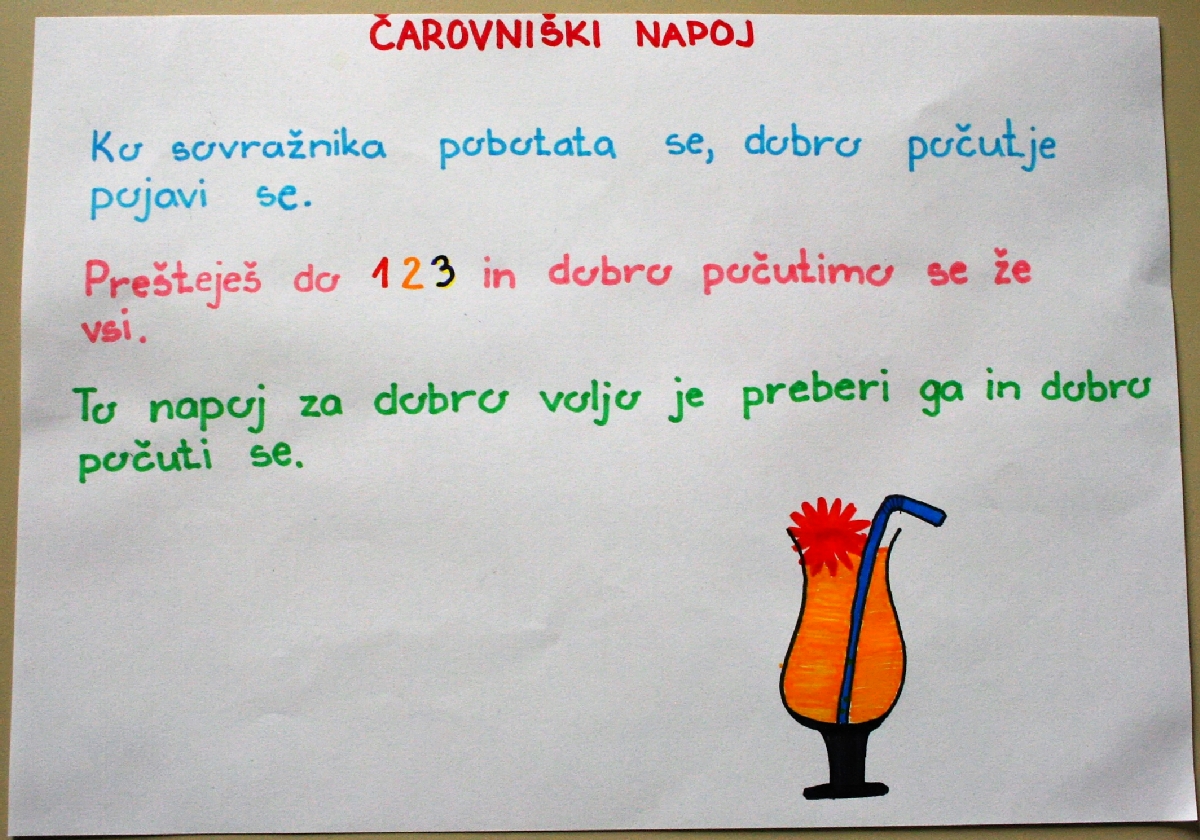 ČAROVNIŠKI NAPOJ
Ko sovražnika pobotata se, dobro počutje
pojavi se.
Prešteješ do 123 in dobro počutimo se že
vsi.
To napoj za dobro voljo je preberi ga in dobro
počuti se.